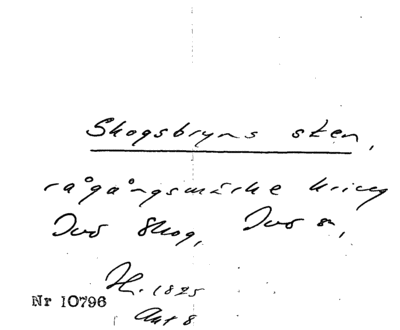 Skogsbryns sten,
rågångsmärke kring
Ivö Skog, Ivö sn,
H. 1825
Akt 8
Nr 10796